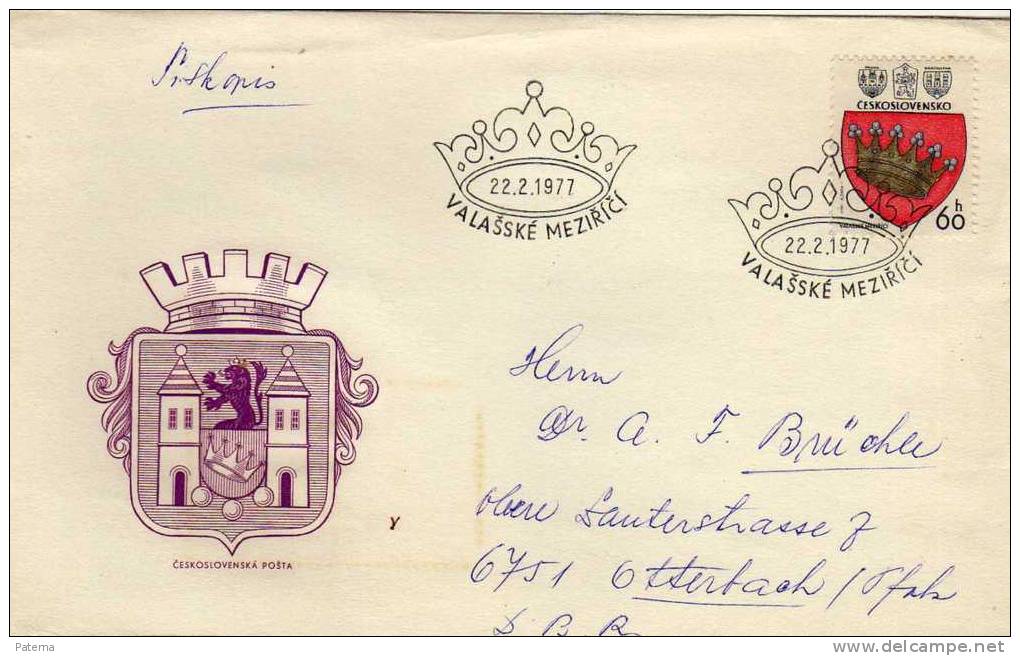 Tiskopis
ČESKOSLOVENSKO
60 h
VALAŠSKÉ MEZIŘÍČÍ
22.2.1977
VALAŠSKÉ MEZIŘÍČÍ
22.2.1977
VALAŠSKÉ MEZIŘÍČÍ
Herrn
Dr. A. F. Brüchle
obere Lauterstrasse 7
6751 Otterbach / Pfalz
D. B. R.
ČESKOSLOVENSKÁ POŠTA
Paterna
delcampe.net